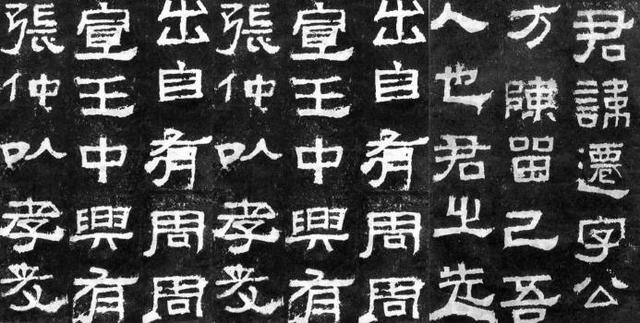 君諱遷字公
方陳留己吾
人也君之先
出自有周周
宣王中興有
張仲以孝友
出自有周周
宣王中興有
張仲以孝友